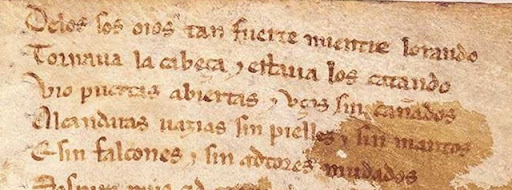 Delos sos oios tan fuerte mientre lorando
Tornaua la cabeça y estaua los catando
Vio puertas abiertas y vços sin cañados
Alcandaras uazias sin pielles y sin mantos
E sin falcones y sin adtores mudados